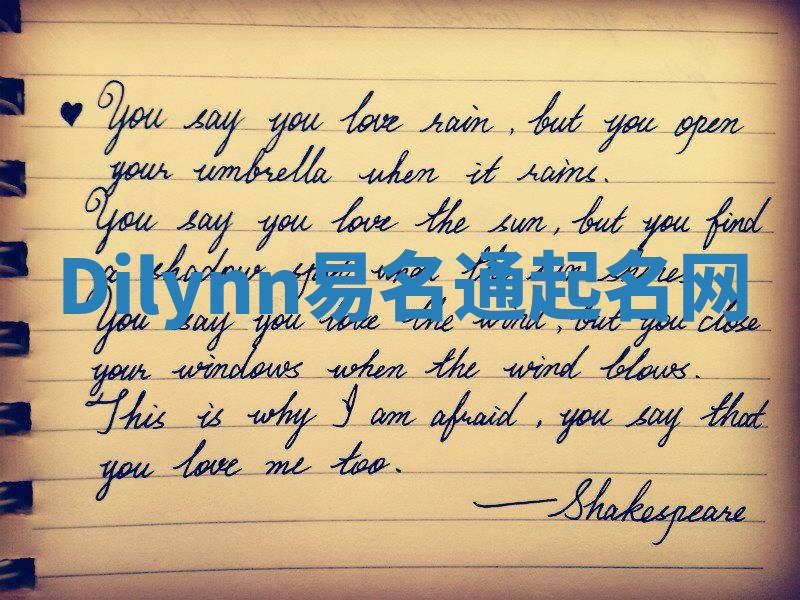 ♥ You say you love rain, but you open
your umbrella when it rains.
You say you love the sun, but you find
a shadow spot when the sun shines
Dilynn易名通起名网
You say you love the wind, but you close
your windows when the wind blows.
This is why I am afraid, you say that
you love me too.
—Shakespeare